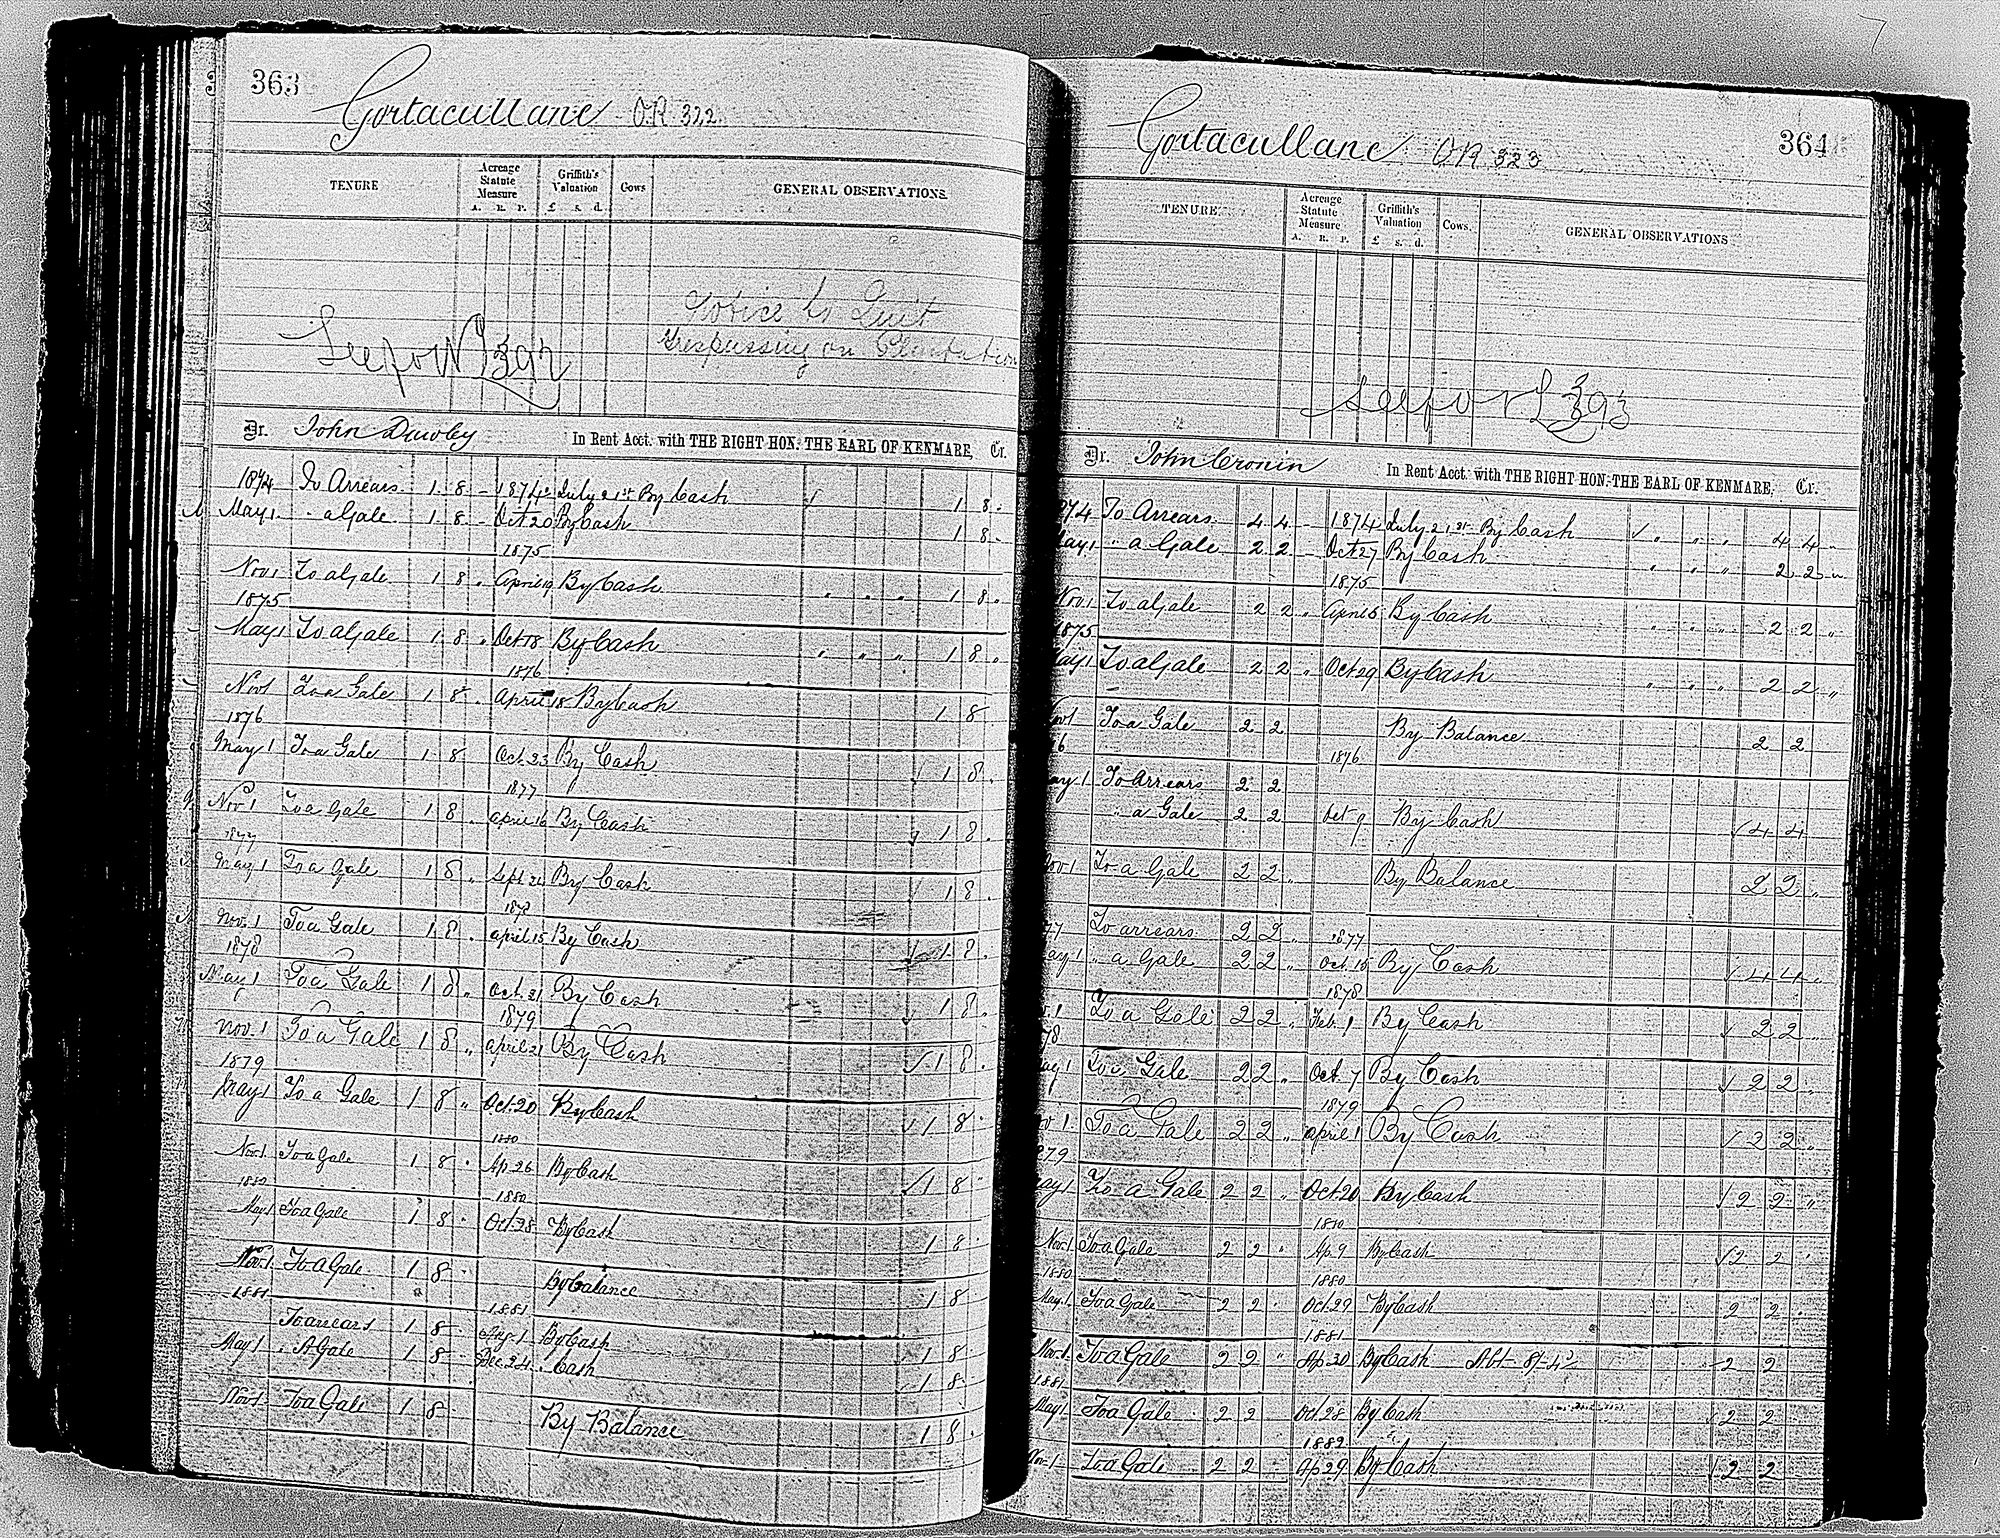 363
Gortacullane O.R 322.
TENURE
Acreage Statute Measure
A. R. P.
Griffith's Valuation
£ s. d.
Cows
GENERAL OBSERVATIONS
Notice to Quit
trespassing on Plantation
See for N L 392
Dr. John Dawley In Rent Acct. with THE RIGHT HON. THE EARL OF KENMARE, Cr.
1874 To Arrears 1 8 - 1874 July 21st By Cash 1 8 -
May 1 " a Gale 1 8 - Oct 20 By Cash 1 8 -
1875
Nov 1 To a Gale 1 8 " April 19 By Cash " " " 1 8 "
1875
May 1 To a Gale 1 8 " Oct 18 By Cash " " " 1 8 "
1876
Nov 1 To a Gale 1 8 " April 18 By Cash 1 8
1876
May 1 To a Gale 1 8 Oct. 23 By Cash 1 8 "
1877
Nov 1 To a Gale 1 8 " April 16 By Cash 1 8 "
1877
May 1 To a Gale 1 8 " Sept 24 By Cash 1 8 "
1878
Nov. 1 To a Gale 1 8 " April 15 By Cash 1 8 "
1878
May 1 To a Gale 1 8 " Oct. 21 By Cash 1 8 "
1879
Nov. 1 To a Gale 1 8 " April 21 By Cash 1 8 "
1879
May 1 To a Gale 1 8 " Oct. 20 By Cash 1 8 "
1880
Nov. 1 To a Gale 1 8 " Ap. 26 By Cash 1 8 "
1880 1880
May 1 To a Gale 1 8 " Oct. 28 By Cash 1 8 "
Nov. 1 To A Gale 1 8 " By balance 1 8 "
1881 1881
To arrears 1 8 " Aug. 1 By Cash 1 8 "
May 1 " A Gale 1 8 " Dec. 24 " Cash 1 8 "
Nov 1 To a Gale 1 8 By Balance 1 8 "
364
Gortacullane O.R 323
TENURE
Acreage Statute Measure
A. R. P.
Griffith's Valuation
£ s. d.
Cows.
GENERAL OBSERVATIONS
See for N L 393
Dr. John Cronin In Rent Acct. with THE RIGHT HON. THE EARL OF KENMARE, Cr.
874 To Arrears 4 4 - 1874 July 21st By Cash " " " 4 4 "
May 1 " a Gale 2 2 - Oct 27 By Cash " " " 2 2 "
1875
Nov 1 To a Gale 2 2 " April 5 By Cash " " " 2 2 "
1875
May 1 To a Gale 2 2 " Oct 29 By Cash " " " 2 2 "
Nov 1 To a Gale 2 2 By Balance 2 2
76 1876
May 1 To Arrears 2 2
" a Gale 2 2 Oct 9 By Cash 4 4
Nov 1 To a Gale 2 2 " By Balance 2 2 "
77 To arrears 2 2 " 1877
May 1 " a Gale 2 2 " Oct. 15 By Cash 4 4 "
1878
v. 1 To a Gale 2 2 " Feb. 1 By Cash 2 2 "
78
May 1 To a Gale 2 2 " Oct. 7 By Cash 2 2 "
1879
Nov 1. To a Gale 2 2 " April 1 By Cash 2 2 "
879
May 1 To a Gale 2 2 " Oct. 20 By Cash 2 2 "
1880
Nov. 1 To a Gale 2 2 " Ap. 9 By Cash 2 2 "
1880 1880
May 1. To a Gale 2 2 " Oct. 29 By Cash 2 2 "
1881
Nov. 1. To a Gale 2 2 " Ap 30 By Cash 2 2
1881
May 1 To a Gale 2 2 " Oct. 28 By Cash 2 2
1882
Nov. 1 To a Gale 2 2 " Ap 29 By Cash 2 2